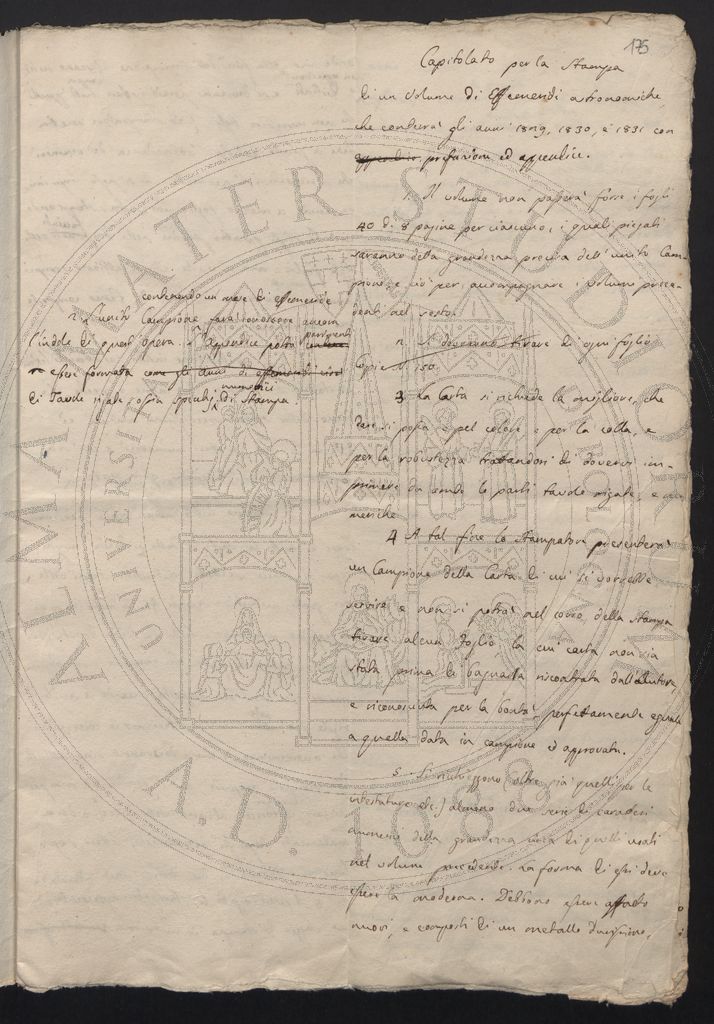 175
Capitolato per la Stampa
di un Volume di Effemeridi astronomiche,
che conterrà gli anni 1829, 1830, e 1831 con
appendice prefazione ed appendice.
1. Il volume non passerà forse i fogli
40 di 8 pagine per ciascuno, i quali piegati
saranno della grandezza precisa dell'unito Cam-
pione, e ciò per accompagnare i Volumi prece-
denti nel sesto.
contenendo un mese di effemeridi
L'unito Campione farà conoscere ancora
l'indole di quest'opera. L'Appendice potrà
esser formata come gli anni di effemeridi
numerici
di Tavole rigate, ossia specchi, di Stampa.
2. Si dovranno tirare di ogni foglio
Copie N. 150.
3. La Carta si richiede la migliore, che
dare si possa e pel colore e per la colla, e
per la robustezza trattandosi di dovervi im-
primere da ambe le parti tavole rigate, e nu-
meriche.
4 A tal fine lo Stampatore presenterà
un Campione della Carta di cui si vorrebbe
servire e non si potrà nel corso della stampa
tirare alcun foglio, la cui carta non sia
stata prima di bagnarla riscontrata dall'Autore,
e riconosciuta per la bontà perfettamente eguale
a quella data in campione ed approvata.
5. Si richieggono oltre quelli per le
intestature etc.) almeno due serie di caratteri
numerici della grandezza di quelli usati
nel volume precedente. La forma di essi deve
essere la moderna. Debbono essere affatto
nuovi, e composti di un metallo durissimo,
ALMA MATER STUDIORUM
UNIVERSITA
BOLOGNA
A.D. 1088